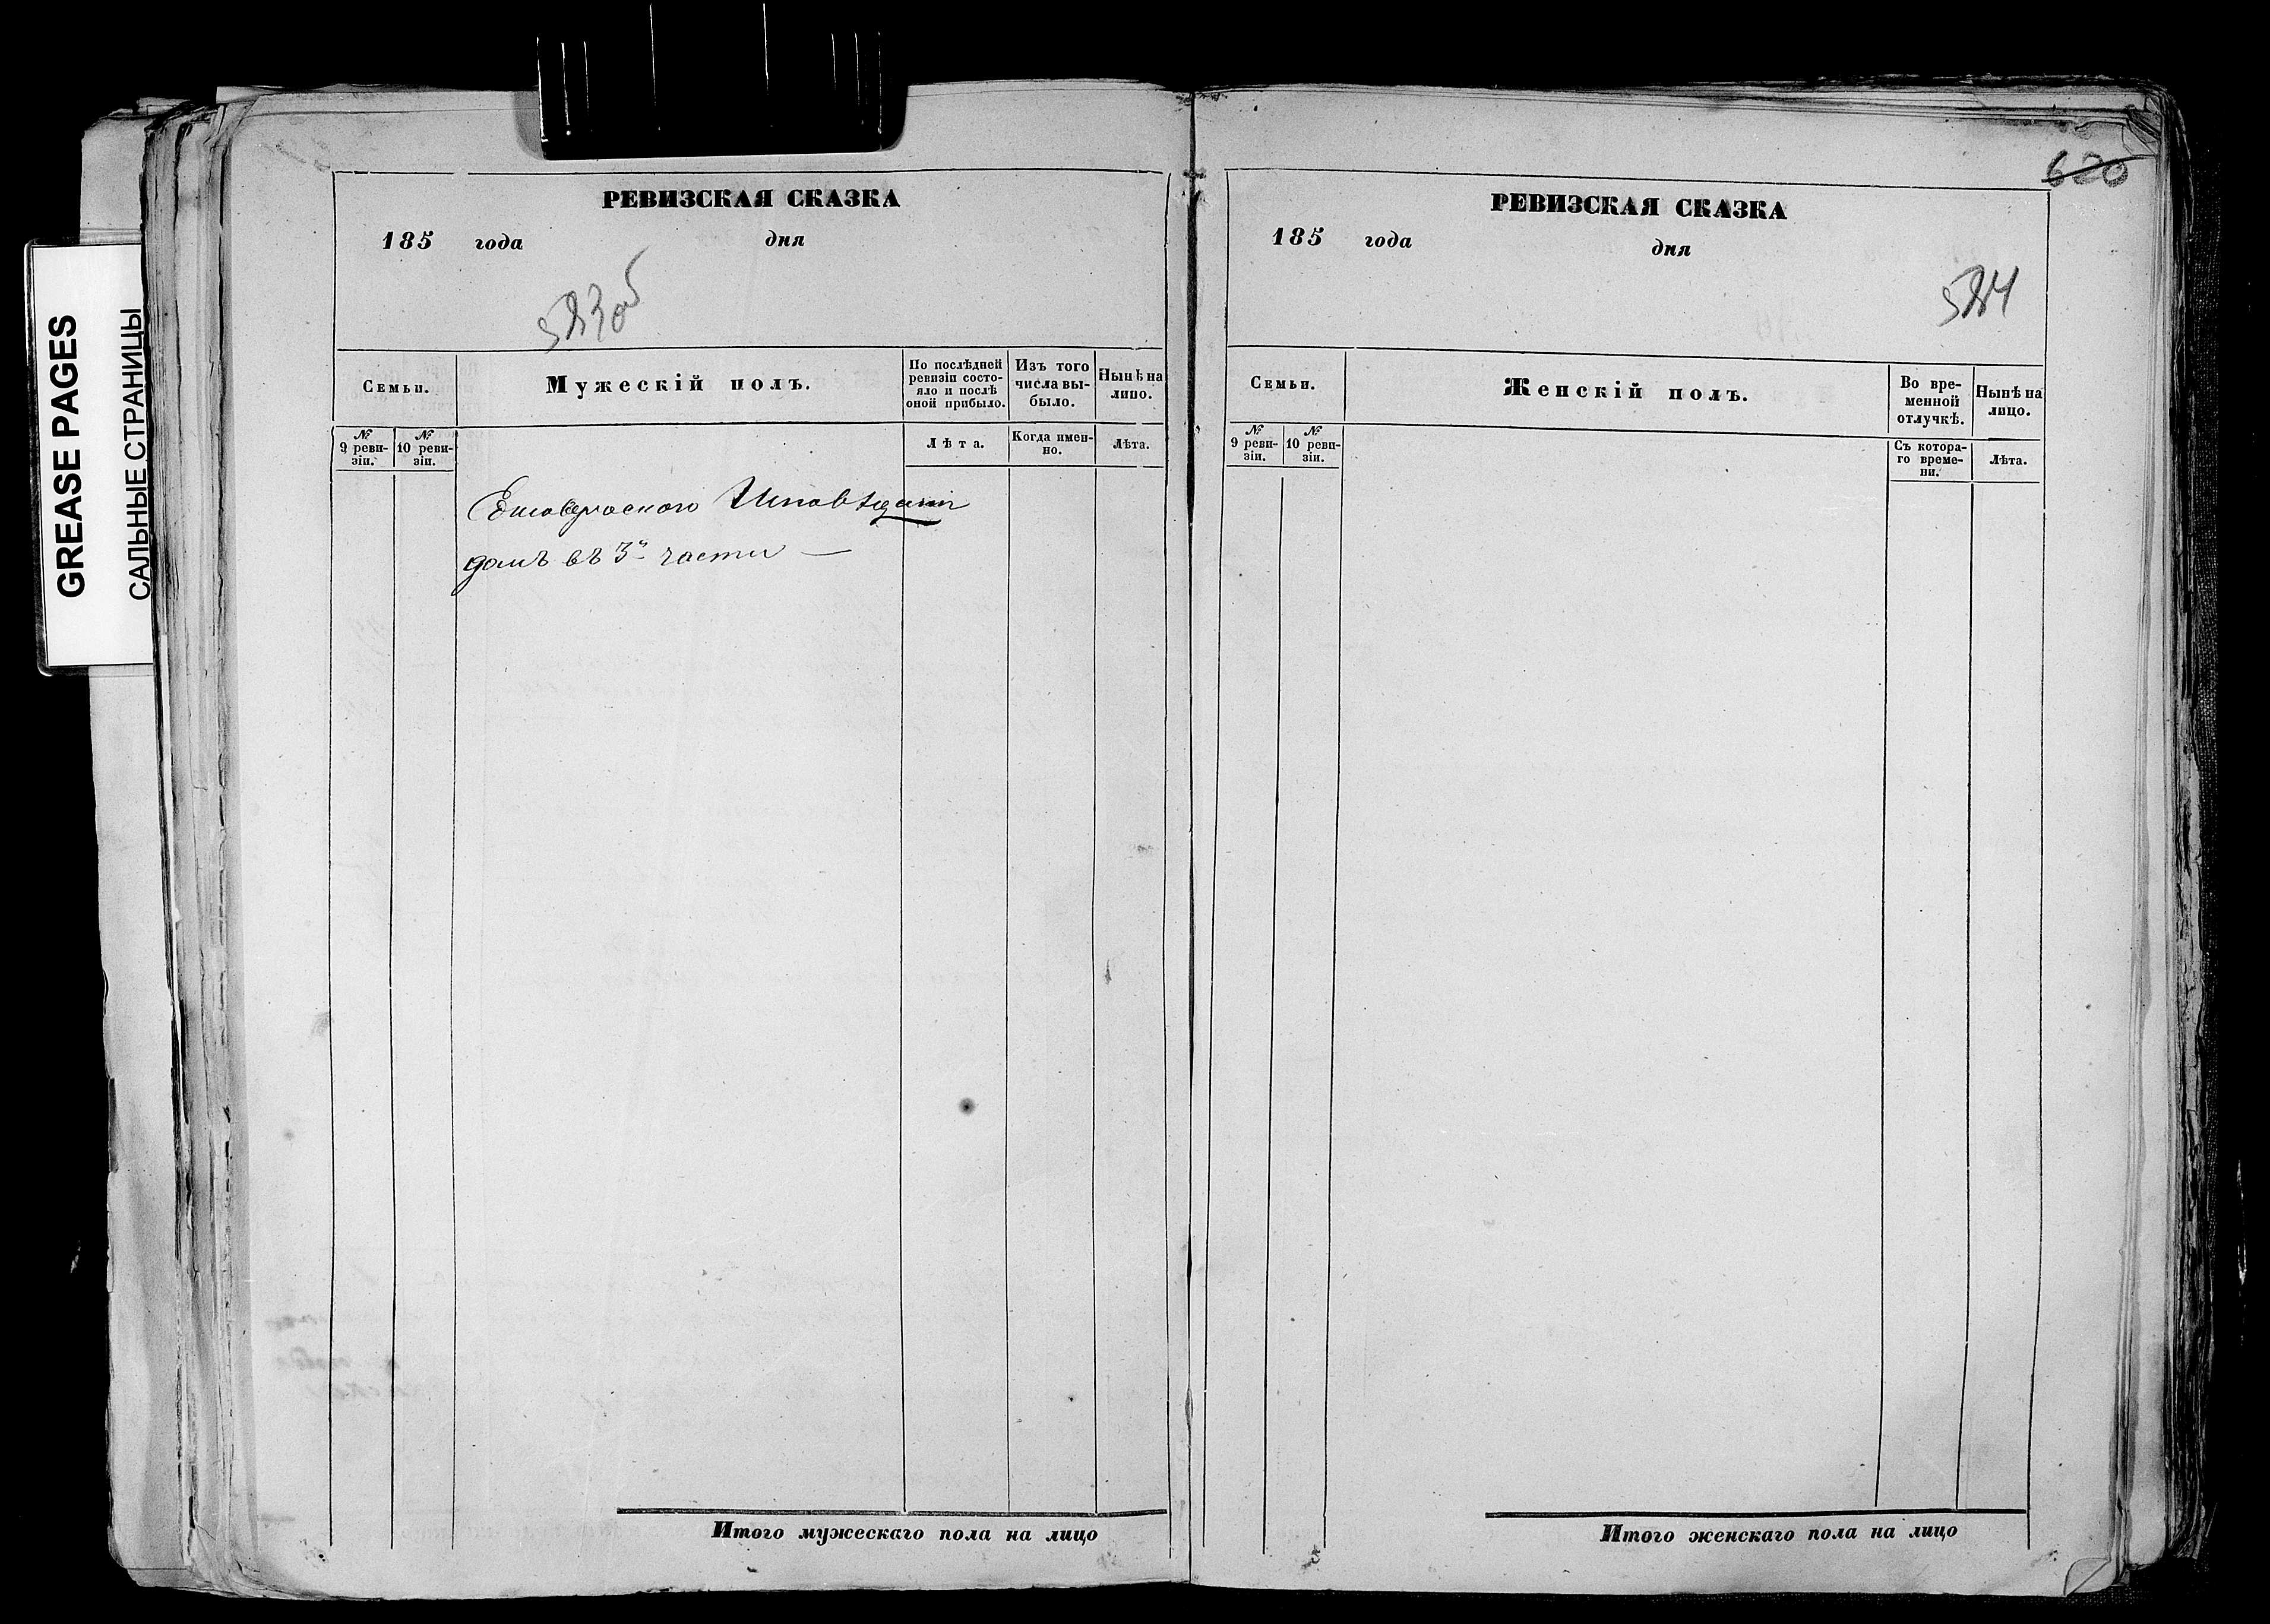 GREASE PAGES
САЛЬНЫЕ СТРАНИЦЫ
РЕВИЗСКАЯ СКАЗКА
185 года дня
Семьи.
Мужескій полъ.
По послѣдней ревизіи состо-
яло и послѣ
оной прибыло.
Изъ того
числа вы-
было.
Нынѣ на
лицо.
№
9 реви-
зіи.
№
10 реви-
зіи.
Лѣта.
Когда имен-
но.
Лѣта.
домъ въ 3й части —
Итого мужескаго пола на лицо
620
РЕВИЗСКАЯ СКАЗКА
185 года дня
Семьи.
Женскій полъ.
Во вре-
менной
отлучкѣ.
Нынѣ на
лицо.
№
9 реви-
зіи.
№
10 реви-
зіи.
Съ котора-
го време-
ни.
Лѣта.
Итого женскаго пола на лицо